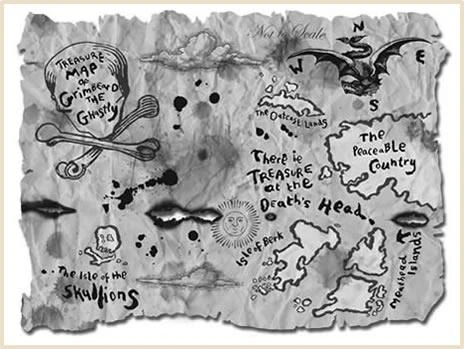 Not to Scale
N
W
E
S
TREASURE
MAP
OF
GRIMBEARD
THE
GHASTLY
The Outcast Lands
The
Peaceable
Country
There is
TREASURE
at the
Death's Head.
Isle of Berk
Meathead
Islands
...The Isle of the
Skullions